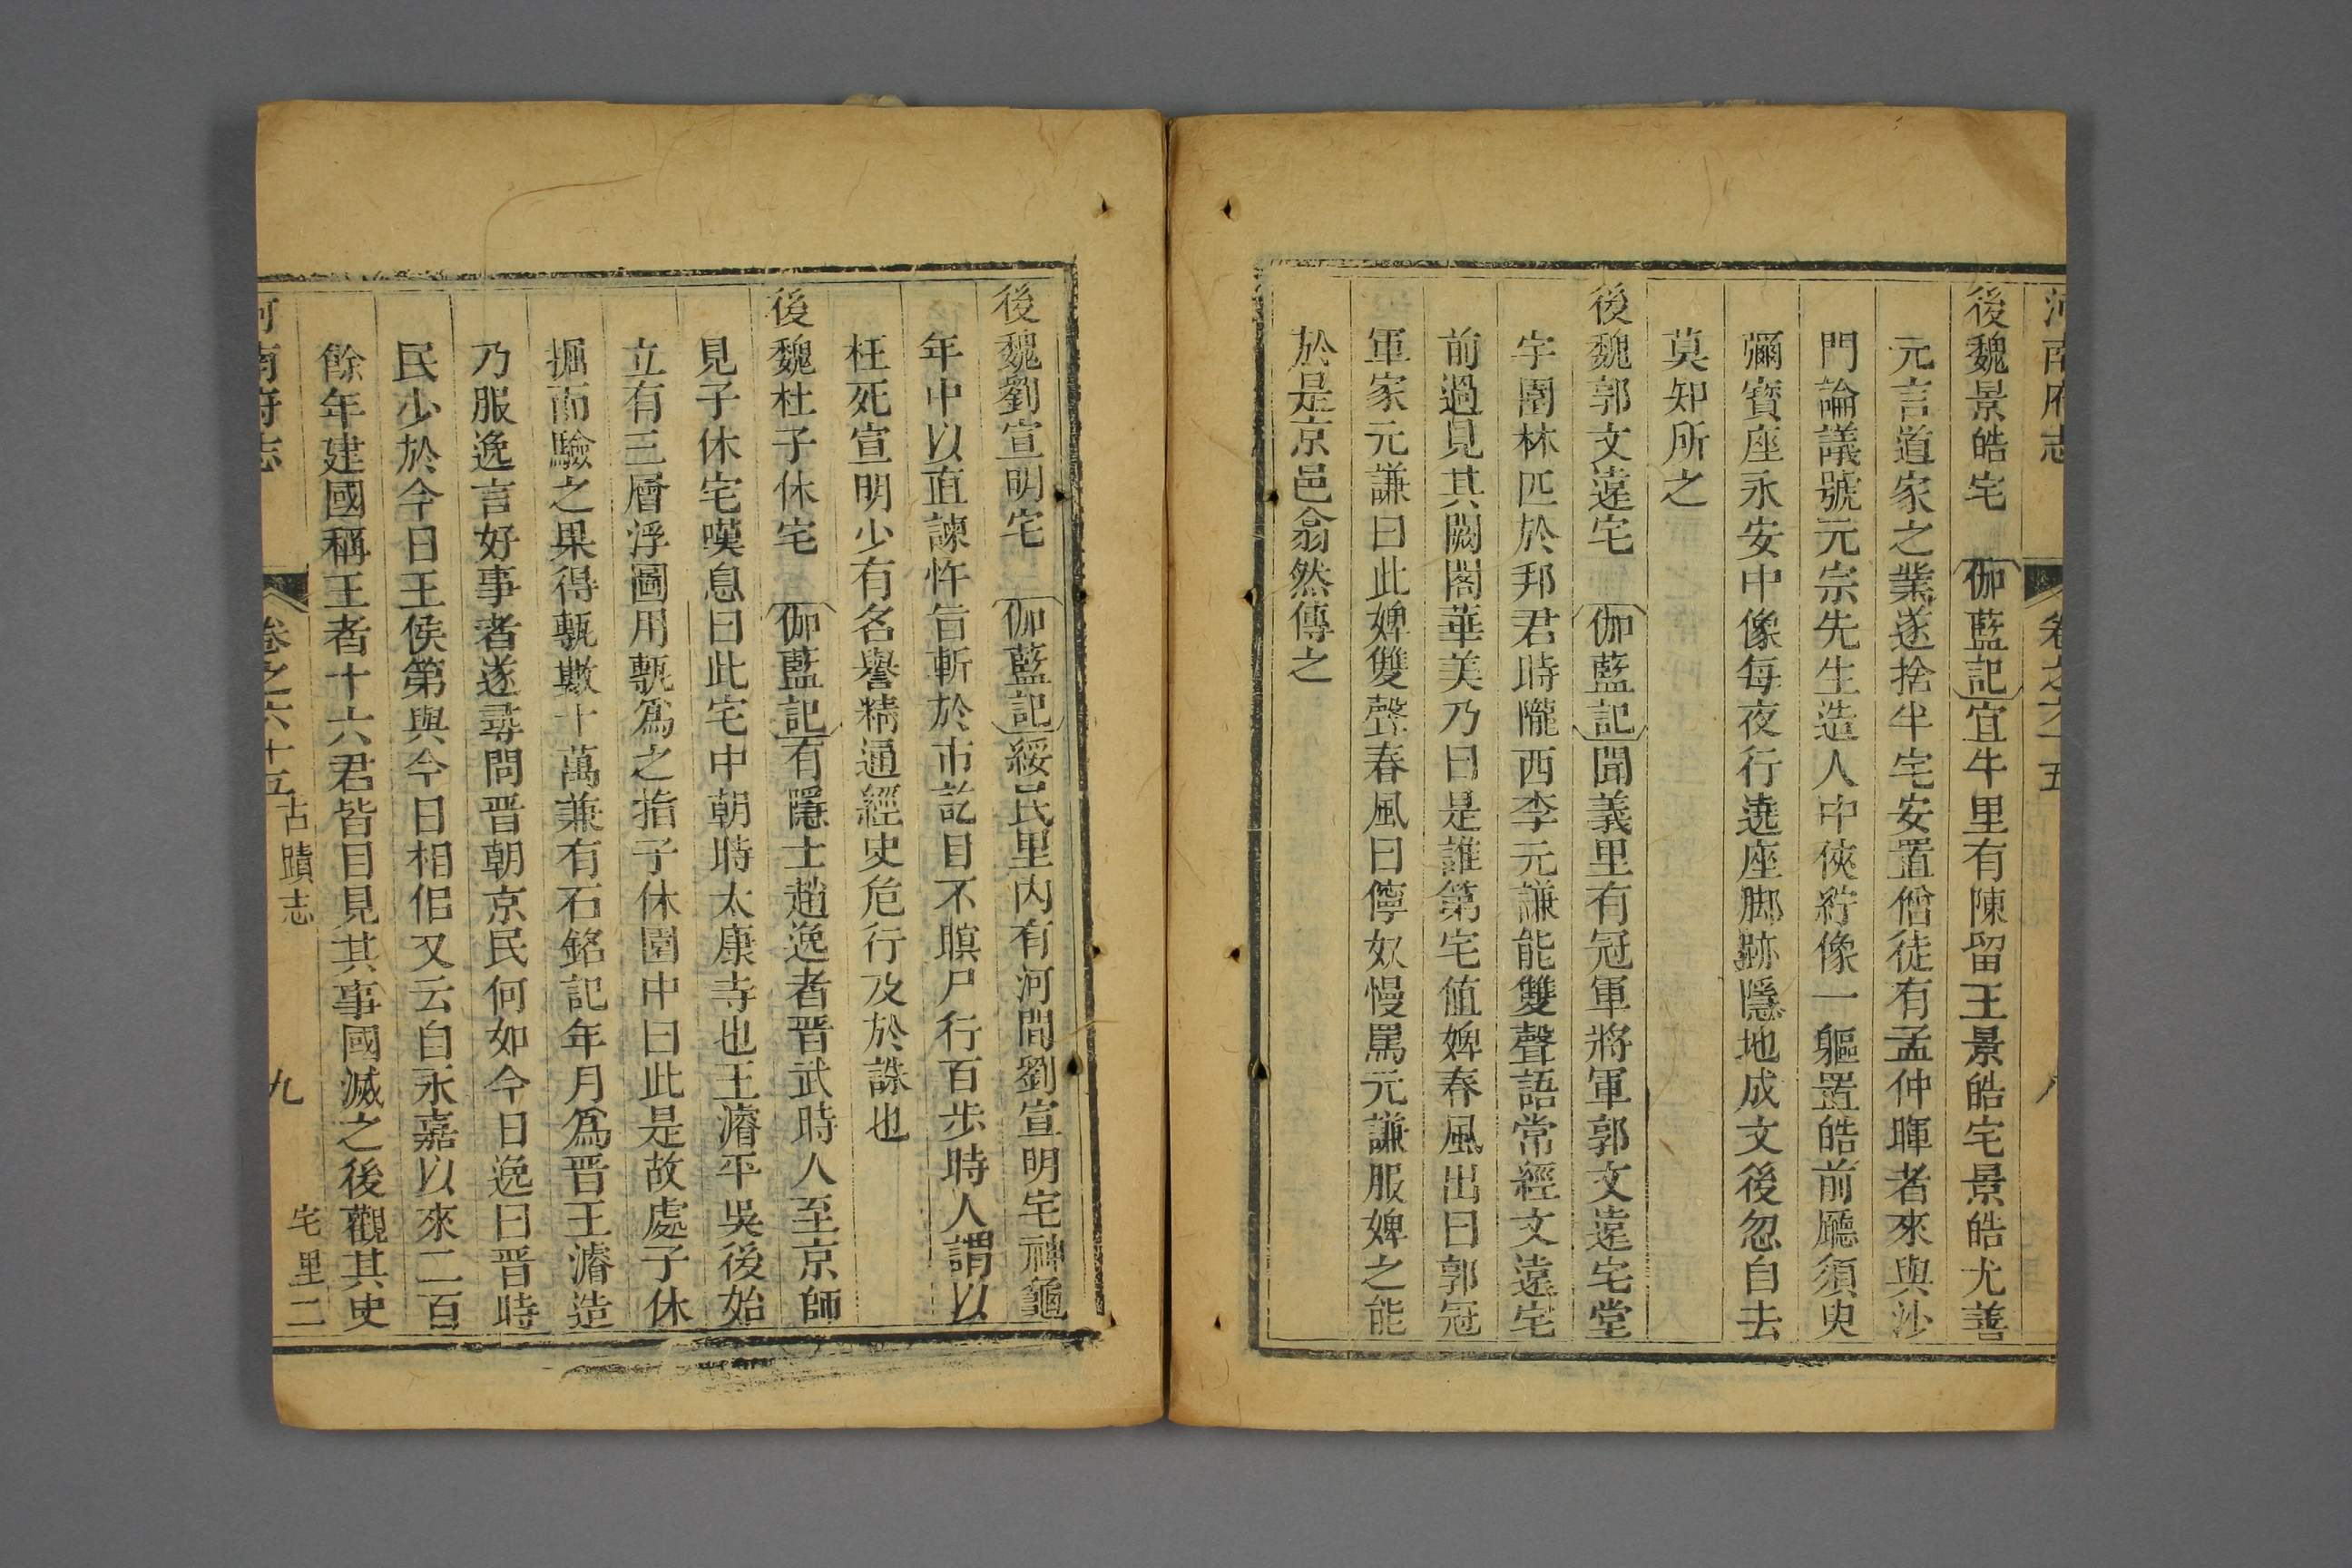 河南府志 卷之六十五 八
後魏景皓宅 伽藍記宜牛里有陳留王景皓宅景皓尤善
元言道家之業遂捨半宅安置僧徒有孟仲暉者來與沙
門論議號元宗先生造人中俠紵像一軀置皓前廳須臾
彌寶座永安中像每夜行遶座腳跡隱地成文後忽自去
莫知所之
後魏郭文遠宅 伽藍記聞義里有冠軍將軍郭文遠宅堂
宇園林匹於邦君時隴西李元謙能雙聲語常經文遠宅
前過見其閥閣華美乃曰是誰第宅值婢春風出曰郭冠
軍家元謙曰此婢雙聲春風曰儜奴慢罵元謙服婢之能
於是京邑翕然傳之
後魏劉宣明宅 伽藍記綏民里內有河間劉宣明宅神龜
年中以直諫忤旨斬於市訖目不瞑尸行百步時人謂以
枉死宣明少有名譽精通經史危行及於誅也
後魏杜子休宅 伽藍記有隱士趙逸者晋武時人至京師
見子休宅嘆息曰此宅中朝時太康寺也王濬平吳後始
立有三層浮圖用甎爲之指子休園中曰此是故處子休
掘而驗之果得甎數十萬兼有石銘記年月爲晋王濬造
乃服逸言好事者遂尋問晋朝京民何如今日逸曰晋時
民少於今日王侯第與今日相佀又云自永嘉以來二百
餘年建國稱王者十六君皆目見其事國滅之後觀其史
河南府志 卷之六十五 古蹟志 九 宅里二